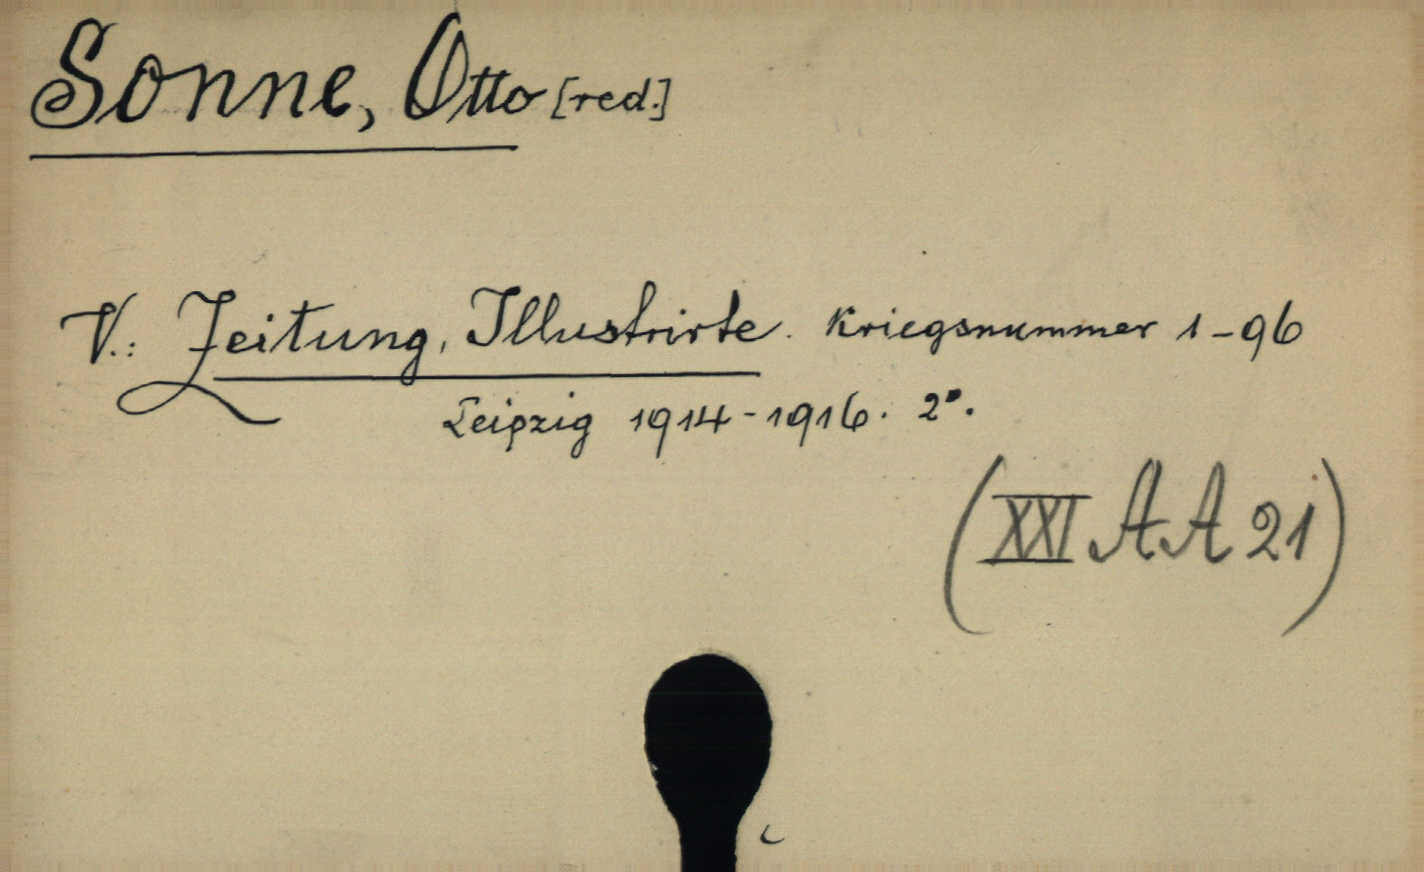 Sonne, Otto [red.]
V.: Zeitung, Illustrirte. Kriegsnummer 1-96
Leipzig 1914-1916. 2°.
(XXI AA 21)